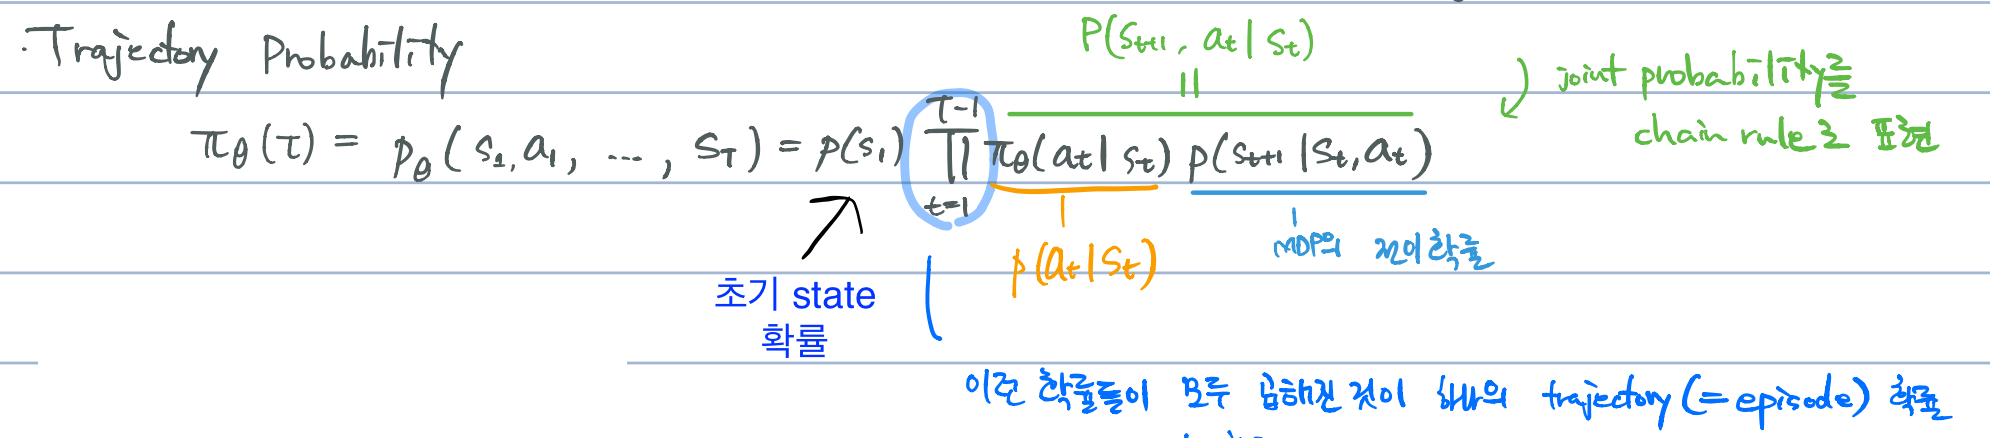 · Trajectory Probability
P(s_{t+1}, a_t | s_t)
||
joint probability를
chain rule로 표현
π_θ(τ) = p_θ(s_1, a_1, ..., s_T) = p(s_1) ∏_{t=1}^{T-1} π_θ(a_t | s_t) p(s_{t+1} | s_t, a_t)
p(a_t | s_t)
MDP의 전이확률
초기 state
확률
이런 확률들이 모두 곱해진 것이 하나의 trajectory (= episode) 확률